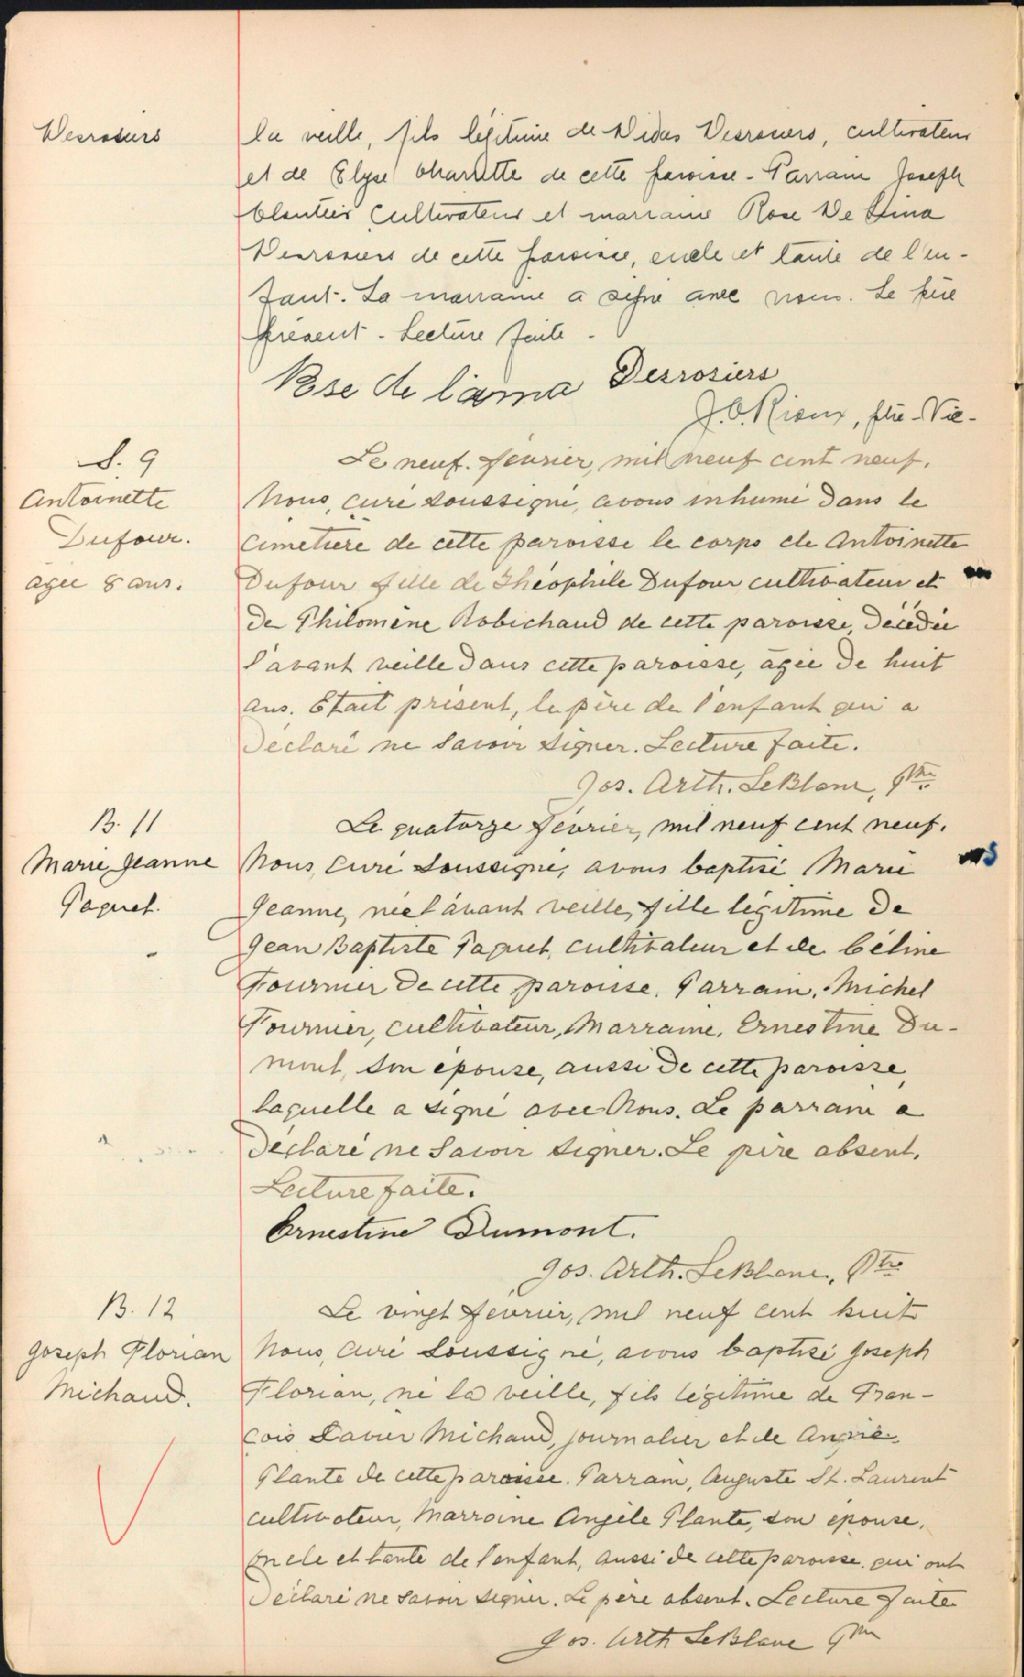 Desrosiers
la veille, fils légitime de Didas Desrosiers, cultivateur
et de Elyse Charette de cette paroisse - Parrain Joseph
cultivateur et marraine Rose De Lima
Desrosiers de cette paroisse, oncle et tante de l'en-
fant. La marraine a signé avec nous. Le père
présent - Lecture faite -
Rose de lama Desrosiers
J. O. Rioux, ptre-Vic-
S. 9
Antoinette
Dufour.
agée 8 ans.
Le neuf février, mil neuf cent neuf,
Nous, curé soussigné, avons inhumé dans le
cimetière de cette paroisse le corps de Antoinette
Dufour fille de Théophile Dufour cultivateur et
de Philomène Robichaud de cette paroisse, décédée
l'avant veille dans cette paroisse, âgée de huit
ans. Etait présent, le père de l'enfant qui a
déclaré ne savoir signer. Lecture faite.
Jos. Arth. LeBlanc, Ptre
B. 11
Marie Jeanne
Paquet.
Le quatorze février, mil neuf cent neuf,
Nous, curé soussigné, avons baptisé Marie
Jeanne, née l'avant veille, fille légitime de
Jean Baptiste Paquet, cultivateur et de Céline
Fournier de cette paroisse. Parrain, Michel
Fournier, cultivateur, Marraine, Ernestine Du-
mont, son épouse, aussi de cette paroisse,
laquelle a signé avec Nous. Le parrain a
déclaré ne savoir signer. Le père absent.
Lecture faite.
Ernestine Dumont.
Jos. Arth. LeBlanc, Ptre
B. 12
Joseph Florian
Michaud.
Le vingt février, mil neuf cent huit
Nous, curé soussigné, avons baptisé Joseph
Florian, né la veille, fils légitime de Fran-
çois Xavier Michaud, journalier et de
Plante de cette paroisse. Parrain, Auguste St. Laurent
cultivateur, Marraine Angèle Plante, son épouse,
oncle et tante de l'enfant, aussi de cette paroisse qui ont
déclaré ne savoir signer. Le père absent. Lecture faite
Jos. Arth LeBlanc Ptre